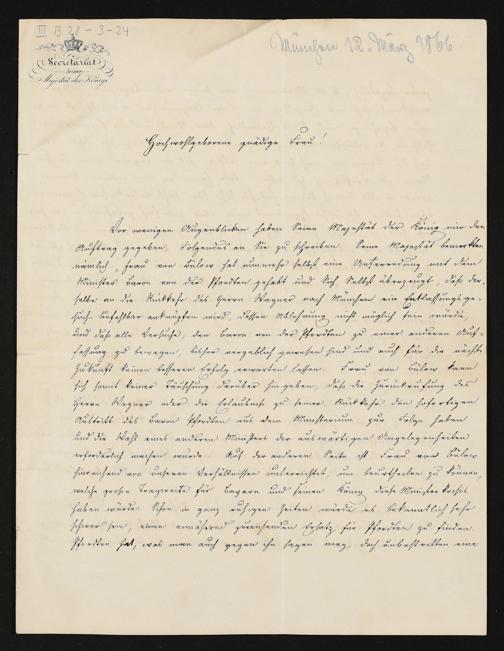 III B 28-3-24
München 12. März 1866
Secretariat
Seiner
Majestät des Königs
Hochwohlgeborene gnädige Frau!
Vor wenigen Augenblicken haben Seine Majestät der König mir den
Auftrag gegeben, Folgendes an Sie zu schreiben. Seine Majestät bemerkten
nämlich, Frau von Bülow hat nunmehr selbst eine Unterredung mit dem
Minister Baron von der Pfordten gehabt und Sich Selbst überzeugt, daß der-
selbe an die Rückkehr des Herrn Wagner nach München ein Entlassungsge-
such unfehlbar anknüpfen wird, dessen Ablehnung nicht möglich sein würde,
und daß alle Versuche, den Baron von der Pfordten zu einer anderen Auf-
fassung zu bewegen, bisher vergeblich gewesen sind und auch für die nächste
Zukunft keinen besseren Erfolg erwarten lassen. Frau von Bülow kann
sich somit keiner Täuschung darüber hingeben, daß die Zurückrufung des
Herrn Wagner oder die Erlaubniß zu seiner Rückkehr den sofortigen
Austritt des Baron Pfordten aus dem Ministerium zur Folge haben
und die Wahl eines anderen Ministers der auswärtigen Angelegenheiten
erforderlich machen würde. Auf der anderen Seite ist Frau von Bülow
hinreichend von unseren Verhältnissen unterrichtet, um beurtheilen zu können,
welche große Tragweite für Bayern und seinen König diese Ministerkrisis
haben würde. Schon in ganz ruhigen Zeiten würde es bekanntlich sehr
schwer sein, einen annähernd genügenden Ersatz für Pfordten zu finden.
Pfordten hat, was man auch gegen ihn sagen mag, doch unbestritten eine